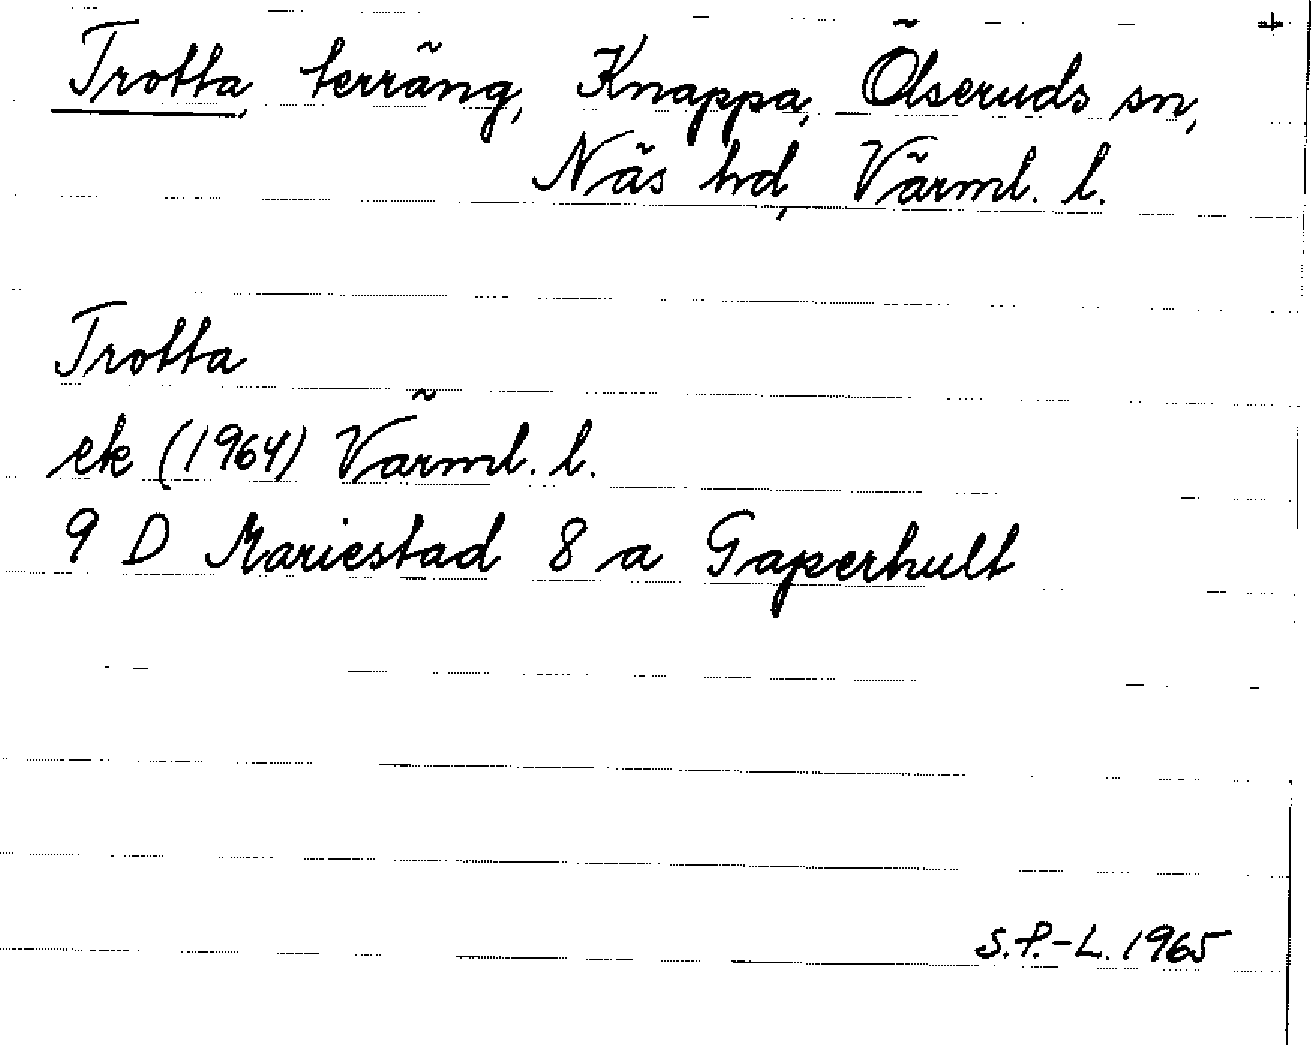 +
Trotta, terräng, Knappa, Ölseruds sn,
Näs hd, Värml. l.
Trotta
ek (1964) Värml. l.
9 D Mariestad 8 a Gaperhult
S.P.-L. 1965